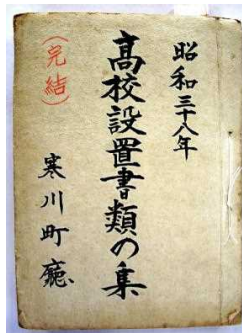 昭和三十八年
高校設置書類の集
(完結)
寒川町廳